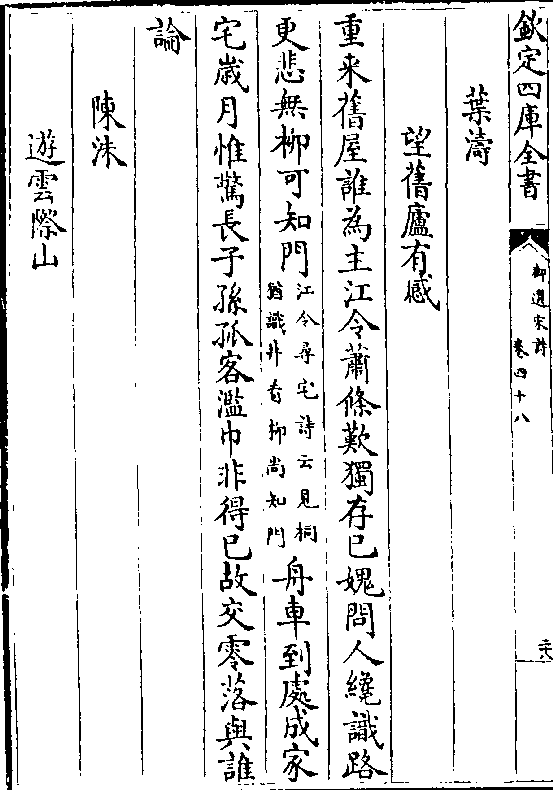 欽定四庫全書
御選宋詩
卷四十八
葉濤
望舊廬有感
重来舊屋誰為主江令蕭條歎獨存已媿問人纔識路
更悲無柳可知門江令尋宅詩云見桐
猶識井看柳尚知門舟車到處成家
宅歳月惟驚長子孫孤客濫巾非得已故交零落與誰
論
陳洙
遊雲際山